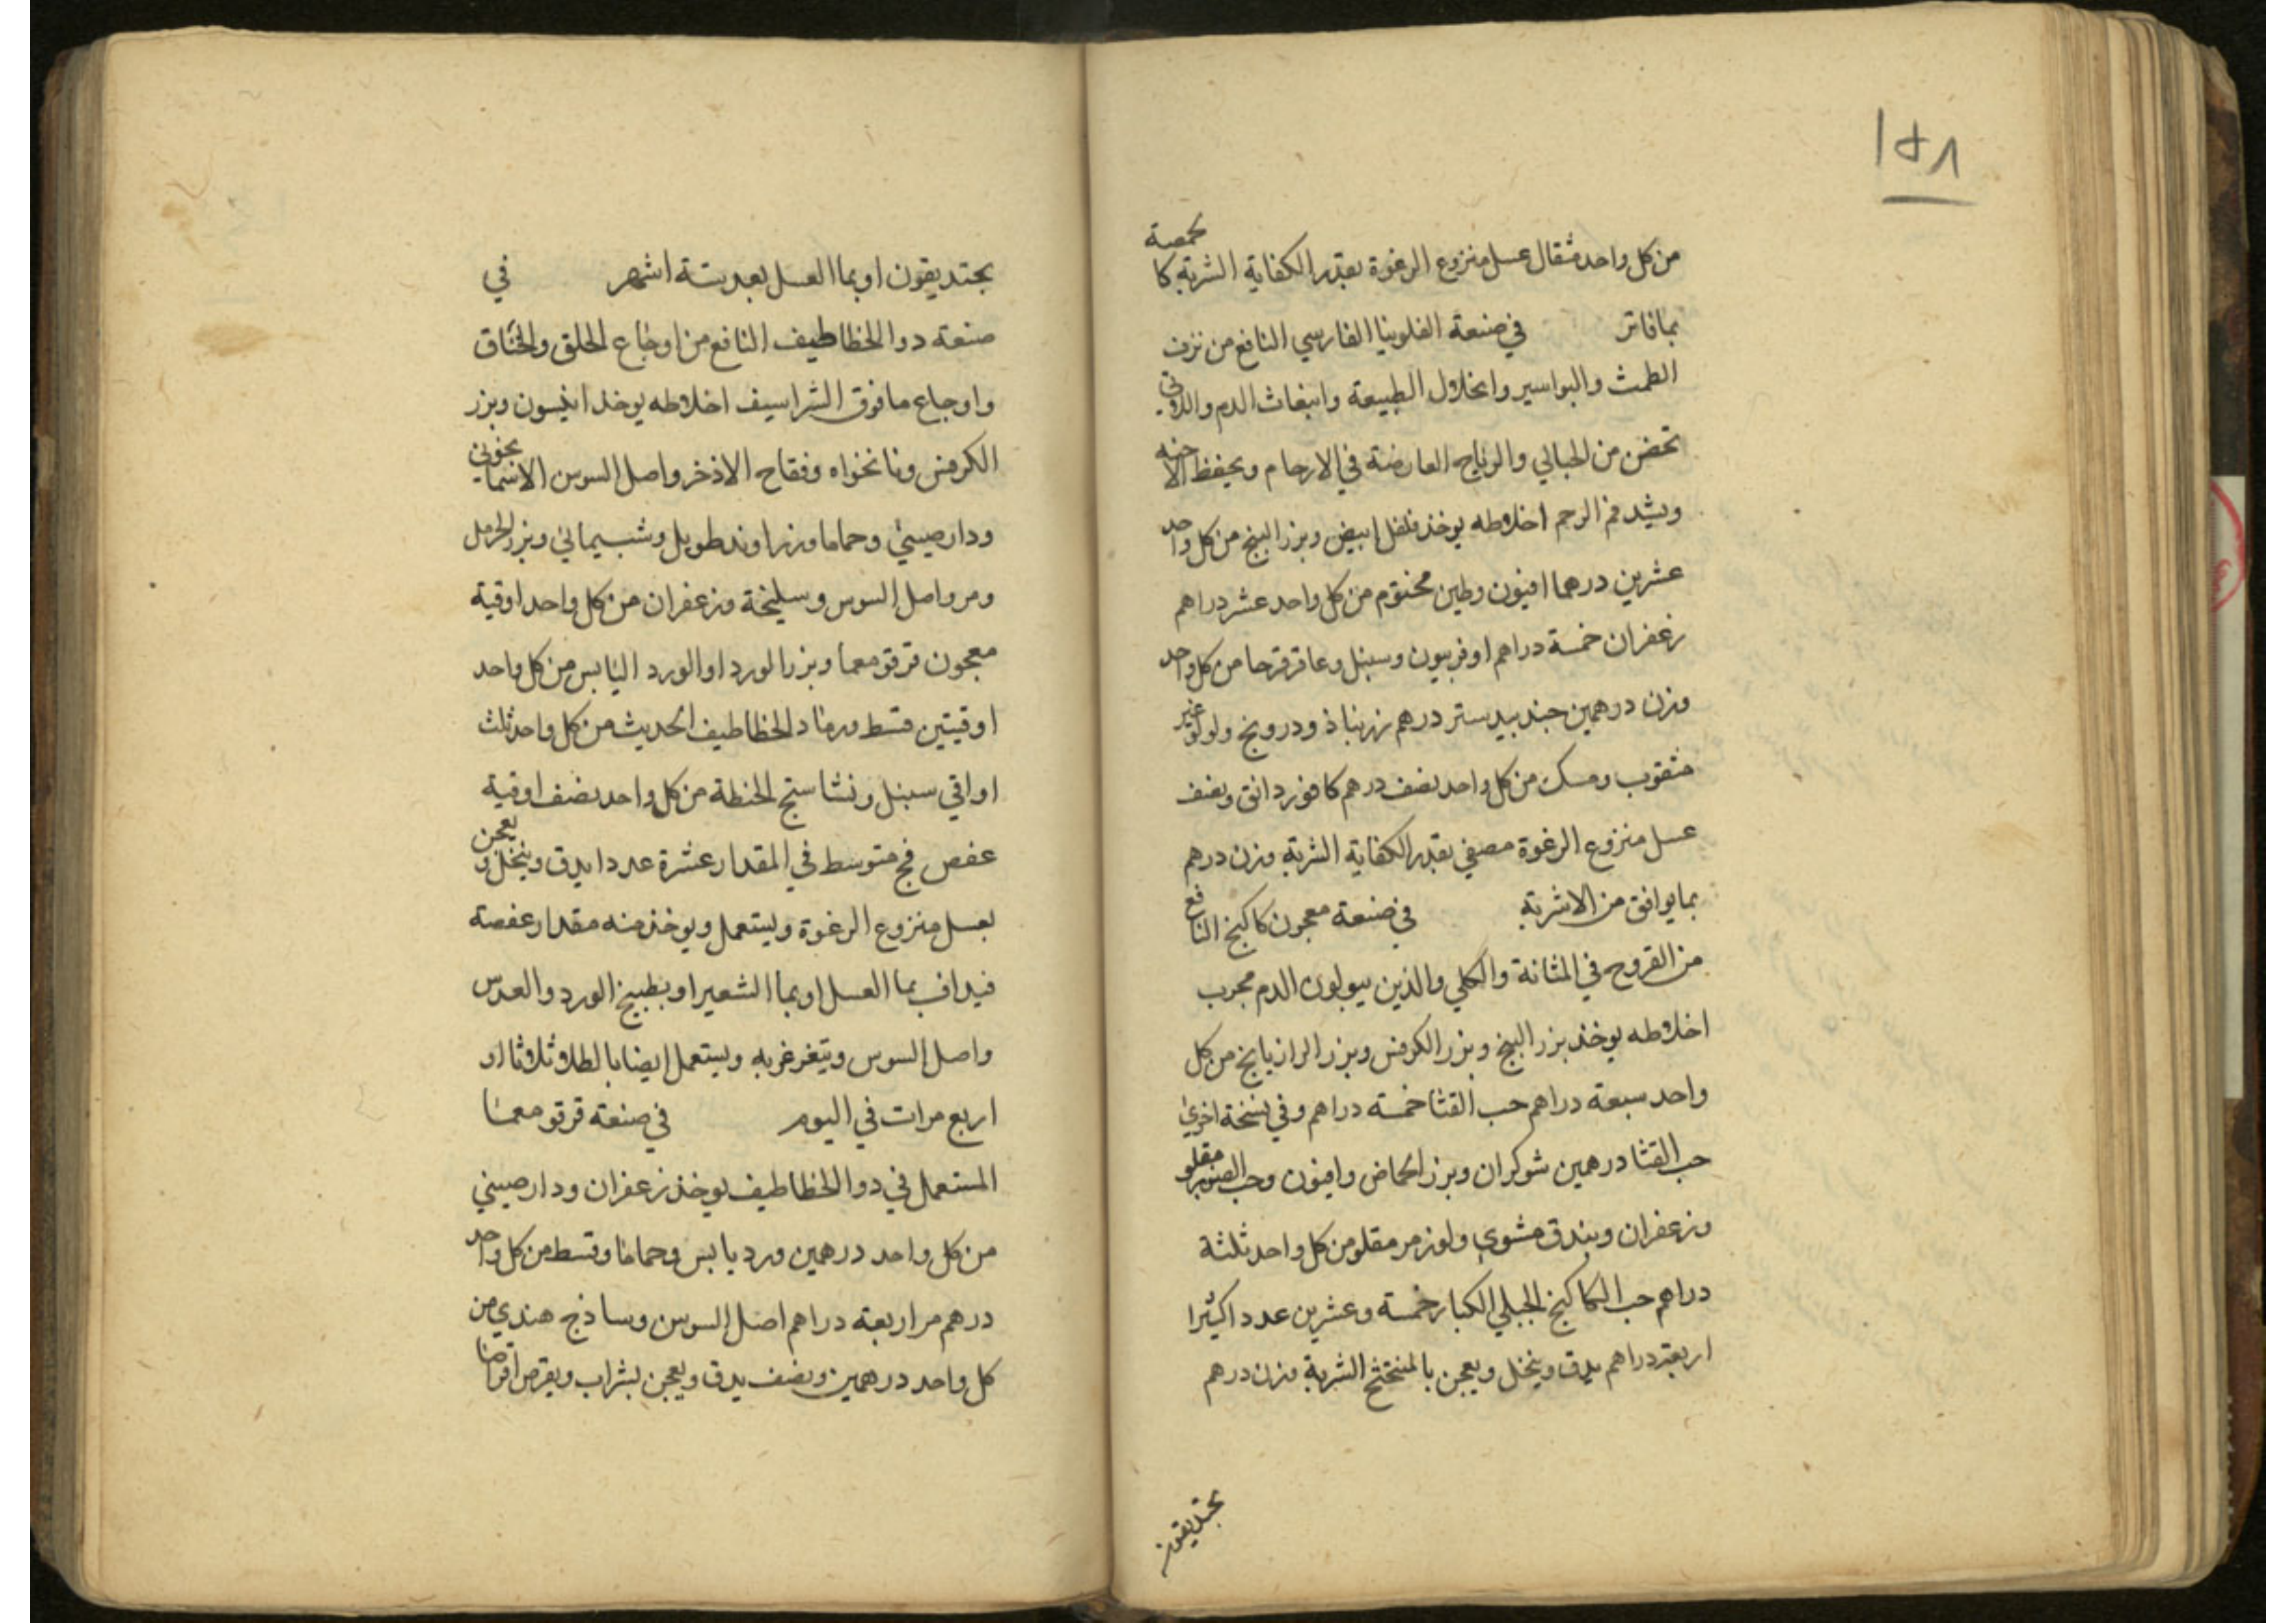 ١٥٨
من كل واحد مثقال عسل منزوع الرغوة بقدر الكفاية الشربة كا
لحمصة
بما فاتر في صنعة الفلونيا الفارسي النافع من نزف
الطمث والبواسير وانحلال الطبيعة وانبعاث الدم واللاتي
تحضن من الحبالي والرياح العارضة في الارحام ويحفظ الاجنه
ويشد فم الرحم اخلاطه يوخذ فلفل ابيض وبزر البنج من كل واحد
عشرين درهما افيون وطين مختوم من كل واحد عشر دراهم
زعفران خمسة دراهم اوفربيون وسنبل وعاقرقرحا من كل واحد
وزن درهمين جندبيدستر درهم زرنباذ ودرونج ولولو غير
مثقوب ومسك من كل واحد نصف درهم كافور دانق ونصف
عسل منزوع الرغوة مصفي بقدر الكفاية الشربة وزن درهم
بما يوافق من الاشربة في صنعة معجون كاكنج النافع
من القروح في المثانة والكلي والذين يبولون الدم مجرب
اخلاطه يوخذ بزر البنج وبزر الكرفس وبزر الرازيانج من كل
واحد سبعة دراهم حب القثا خمسة دراهم وفي نسخة اخري
حب القثا درهمين شوكران وبزر الحماض وافيون وحب الصنوبر مقلو
وزعفران وبندق مشوي ولوز مر مقلو من كل واحد ثلثة
دراهم حب الكاكنج الجبلي الكبار خمسة وعشرين عددا كثيرا
اربعة دراهم يدق وينخل ويعجن بالمنختج الشربة وزن درهم
بجنديقون
بجنديقون او بما العسل بعد ستة اشهر في
صنعة دوا الخطاطيف النافع من اوجاع الحلق والخناق
واوجاع ما فوق الشراسيف اخلاطه يوخذ انيسون وبزر
الكرفس ونانخواه وفقاح الاذخر واصل السوسن الاسمانجوني
ودارصيني وحماما وزراوند طويل وشب يماني وبزر الحرمل
ومر واصل السوس وسليخة وزعفران من كل واحد اوقية
معجون قرقومعما وبزر الورد او الورد اليابس من كل واحد
اوقيتين قسط ورماد الخطاطيف الحديث من كل واحد ثلث
اواقي سنبل ونشاستج الحنطة من كل واحد نصف اوقية
عفص فج متوسط في المقدار عشرة عددا يدق وينخل ويعجن
بعسل منزوع الرغوة ويستعمل ويوخذ منه مقدار عفصة
فيداف بما العسل او بما الشعير او بطبيخ الورد والعدس
واصل السوس ويتغرغر به ويستعمل ايضا بالطلا ثلاثا او
اربع مرات في اليوم في صنعة قرقومعما
المستعمل في دوا الخطاطيف يوخذ زعفران ودارصيني
من كل واحد درهمين ورد يابس وحماما وقسط من كل واحد
درهم مر اربعة دراهم اصل السوس وساذج هندي من
كل واحد درهمين ونصف يدق ويعجن بشراب ويقرص اقراصا